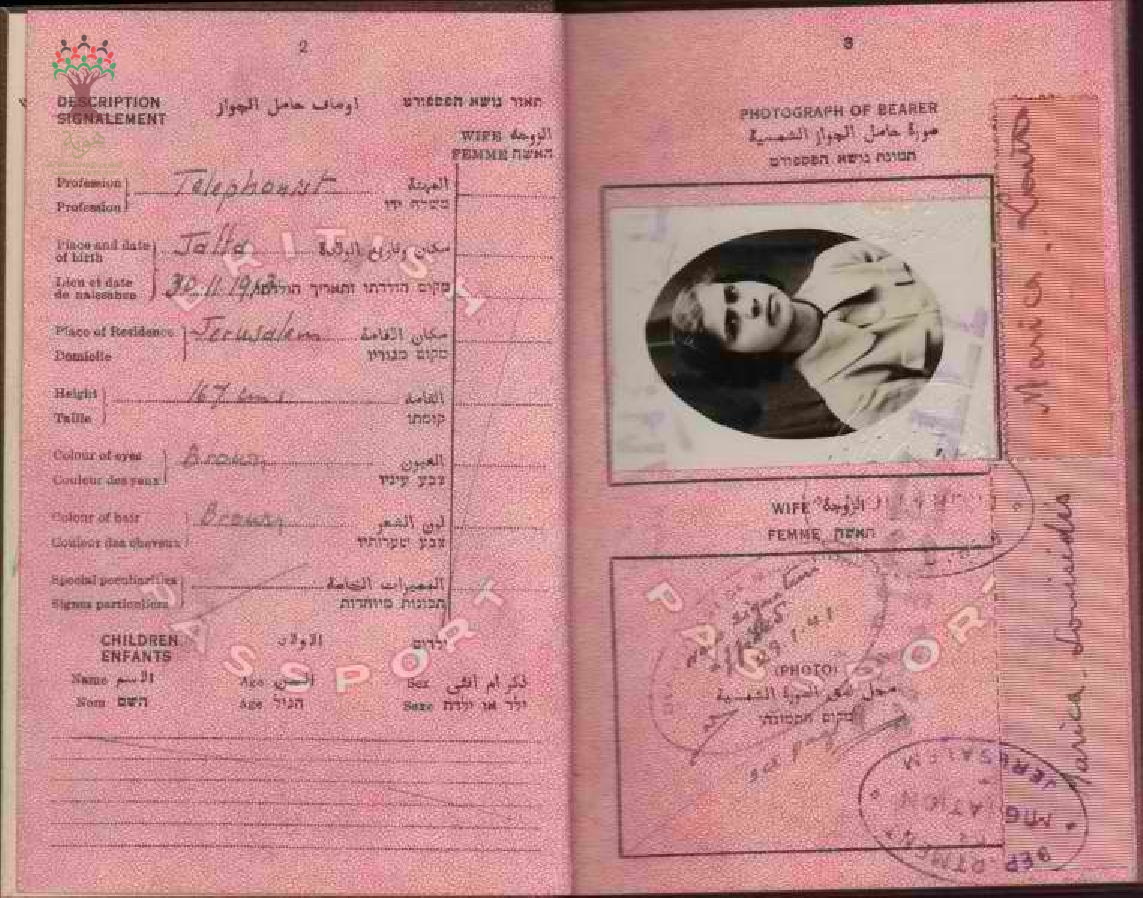 2
DESCRIPTION
SIGNALEMENT
اوصاف حامل الجواز
תאור נושא הפספורט
هوية
WIFE الزوجة
FEMME האשה
Profession
Profession
Telephonist
المهنة
משלח ידו
Place and date
of birth
Lieu et date
de naissance
Jaffa
30.11.1913
مكان وتاريخ الولادة
מקום הולדתו ותאריך הולדתו
Place of Residence
Domicile
Jerusalem
مكان الاقامة
מקום מגוריו
Height
Taille
167 cms.
القامة
קומתו
Colour of eyes
Couleur des yeux
Brown
العيون
צבע עיניו
Colour of hair
Couleur des cheveux
Brown
لون الشعر
צבע שערותיו
Special peculiarities
Signes particuliers
المميزات الخاصة
תכונות מיוחדות
BRITISH
PASSPORT
CHILDREN
ENFANTS
الاولاد
ילדים
Name الاسم
Nom השם
Age السن
Age הגיל
Sex ذكر ام انثى
Sexe ילד או ילדה
3
PHOTOGRAPH OF BEARER
صورة حامل الجواز الشمسية
תמונת נושא הפספורט
WIFE الزوجة
FEMME האשה
PASSPORT
new signature
29.1.41
(PHOTO)
محل لصق الصورة الشمسية
מקום התמונה
see page
Marica
Marica
DEPARTMENT
MIGRATION
JERUSALEM